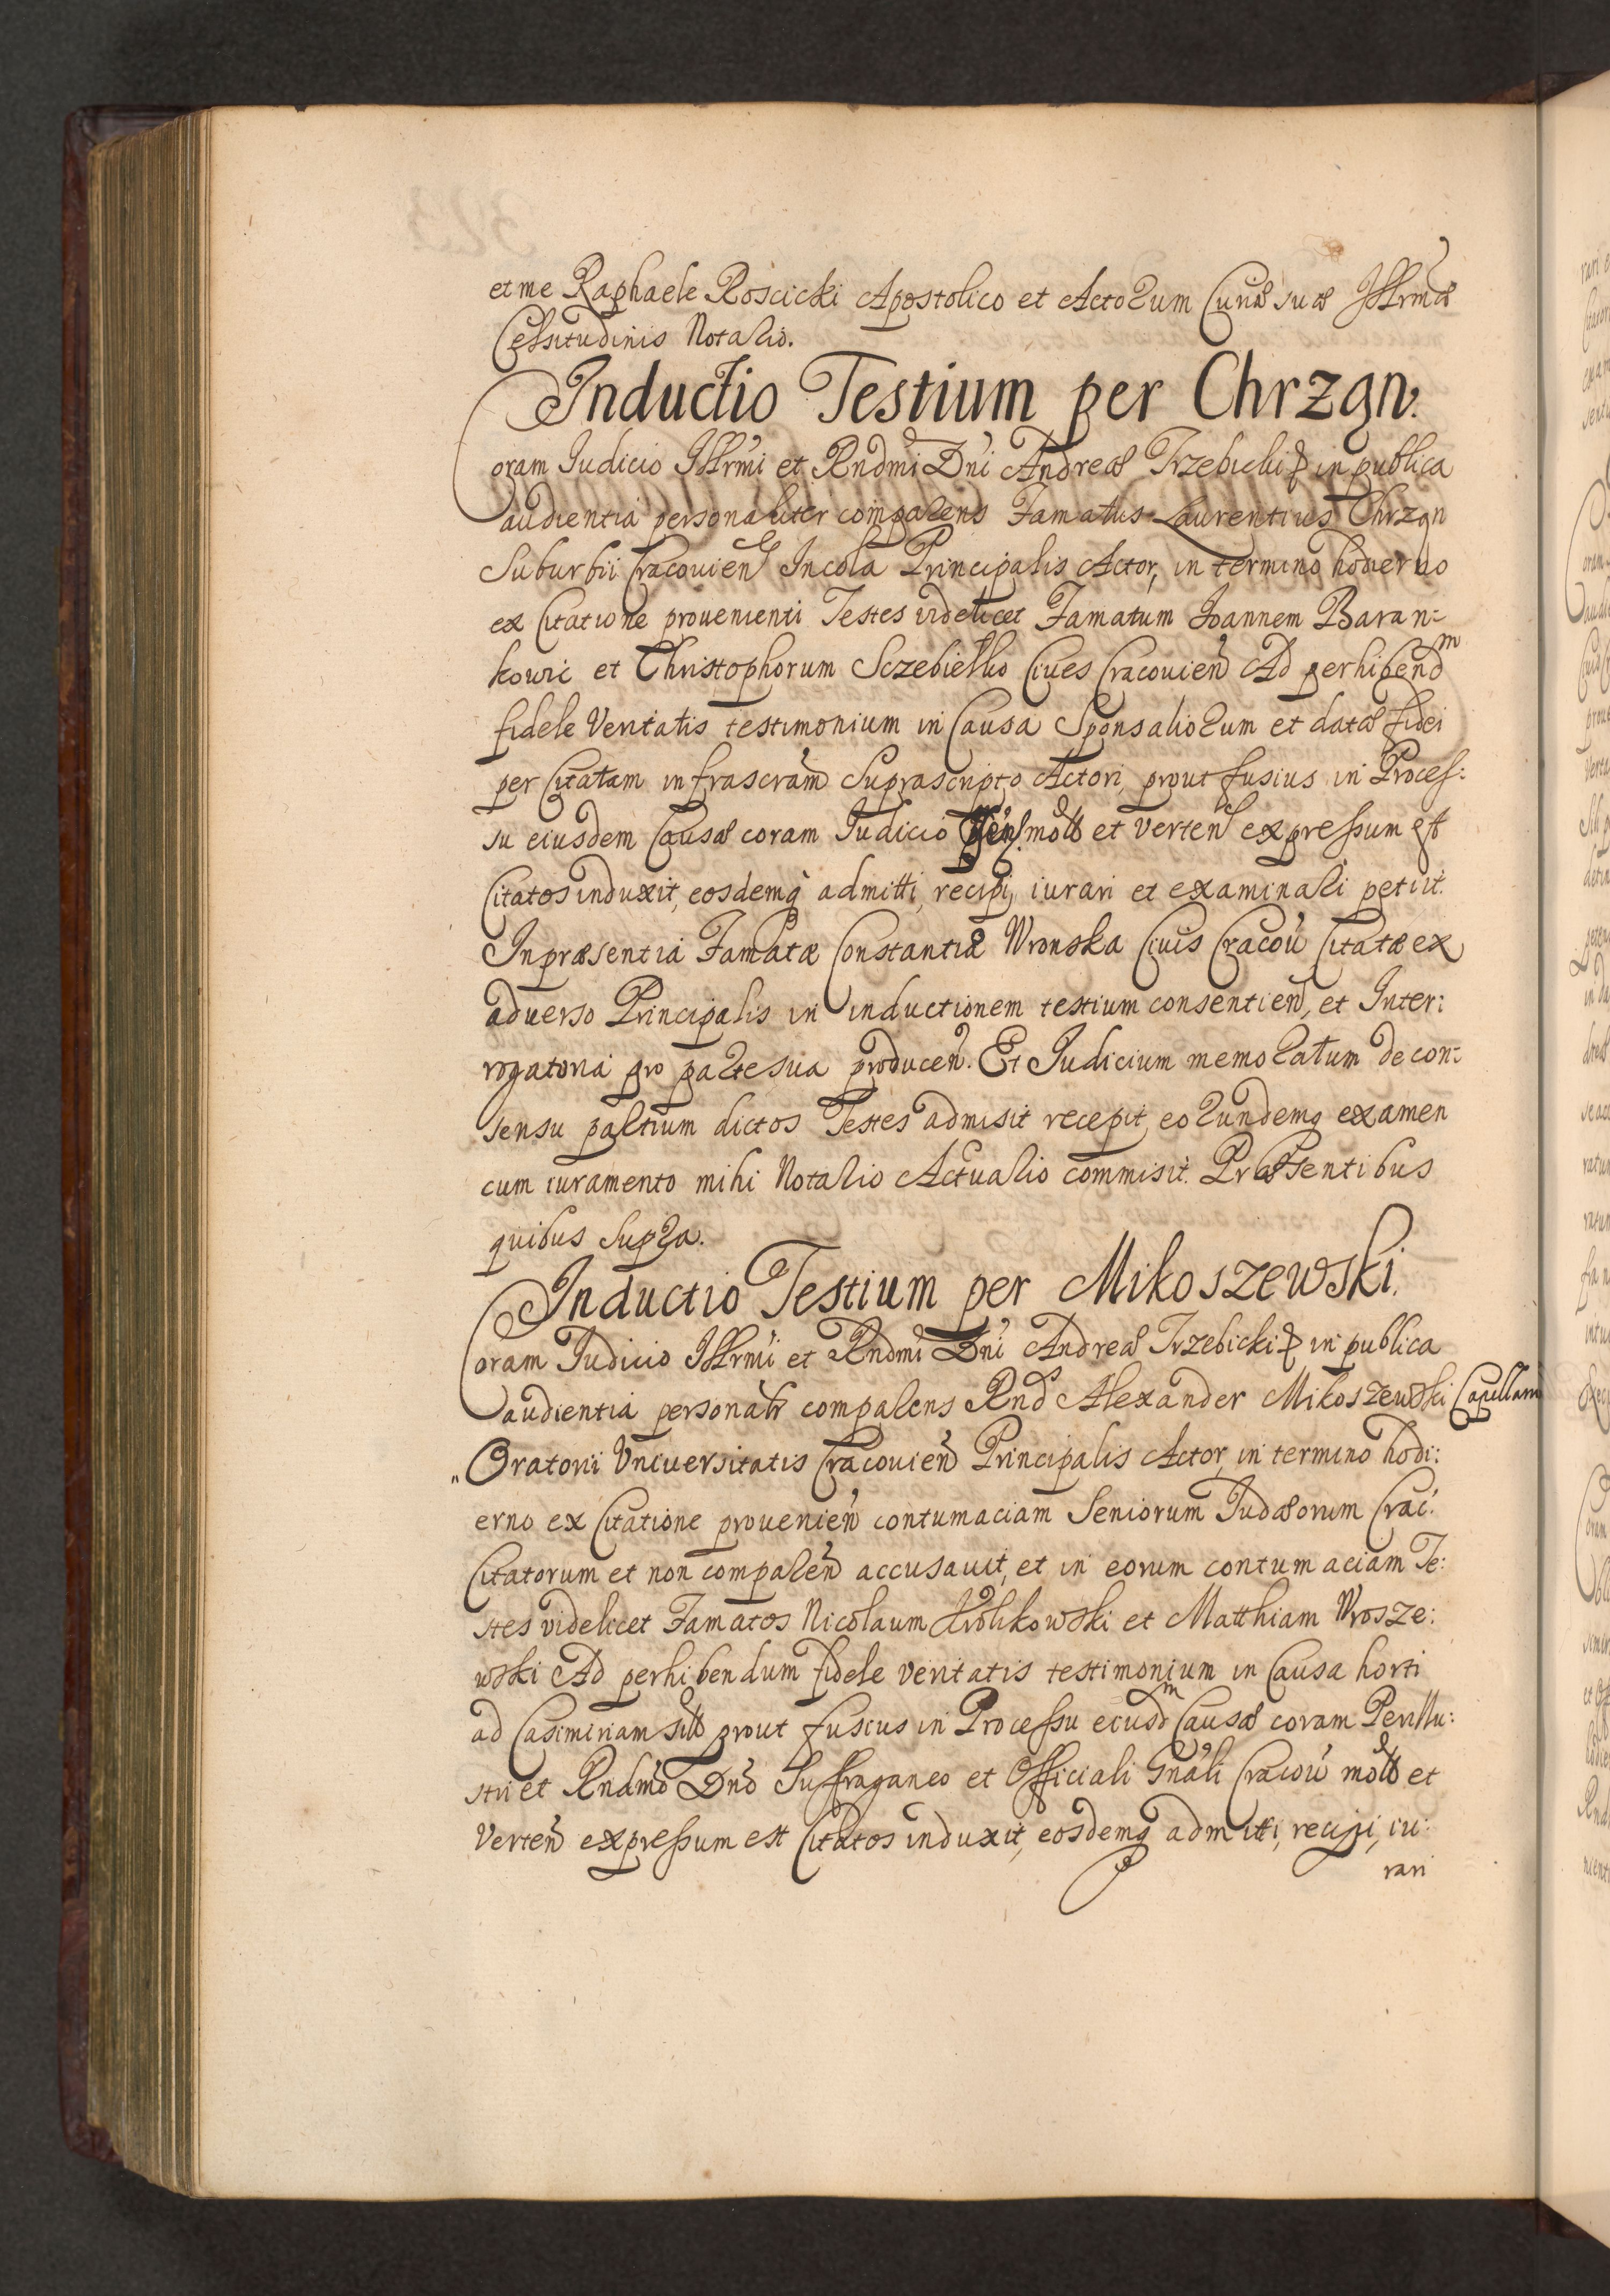 et me Raphaele Roscicki Apostolico et Actorum Curiæ suæ Illrmæ
Celsitudinis Notario.
Inductio Testium per Chrzgn.
Coram Iudicio Illrmi et Rndmi Dni Andreæ Trzebicki in publica
audientia personaliter comparens Famatus Laurentius Chrzgn
Suburbii Cracovien Incola Principalis Actor, in termino hodierno
ex Citatione provenienti Testes videlicet Famatum Ioannem Baran-
kowic et Christophorum Sczebielko Cives Cracovien Ad perhibendm
fidele Veritatis testimonium in Causa Sponsaliorum et datæ fidei
per Citatam infrascram Suprascripto Actori, prout fusius in Proces:
su eiusdem Causæ coram Iudicio mot et verten expressum est
Citatos induxit, eosdemq admitti, recipi, iurari et examinari petiit.
In præsentia Famatæ Constantiæ Wronska Civis Cracov Citatæ ex
adverso Principalis in inductionem testium consentien, et Inter:
rogatoria pro parte sua producen. Et Iudicium memoratum de con:
sensu partium dictos Testes admisit recepit, eorundemq examen
cum iuramento mihi Notario Actuario commisit. Præsentibus
quibus supra.
Inductio Testium per Mikoszewski.
Coram Iudicio Illrmi et Rndmi Dni Andreæ Trzebicki in publica
audientia personalr comparens Rnd Alexander Mikoszewski Capellanus
Oratorii Universitatis Cracovien Principalis Actor, in termino hodi:
erno ex Citatione provenien contumaciam Seniorum Iudæorum Crac.
Citatorum et non comparen accusavit, et in eorum contumaciam Te:
stes videlicet Famatos Nicolaum Krolikowski et Matthiam Wrosze:
wski Ad perhibendum fidele veritatis testimonium in Causa horti
ad Casimiriam sit prout fusius in Processu eiusdm Causæ coram Perillu:
stri et Rndmo Dno Suffraganeo et Officiali Gnali Cracov mot et
Verten expressum est Citatos induxit, eosdemq admitti, recipi, iu:
rari